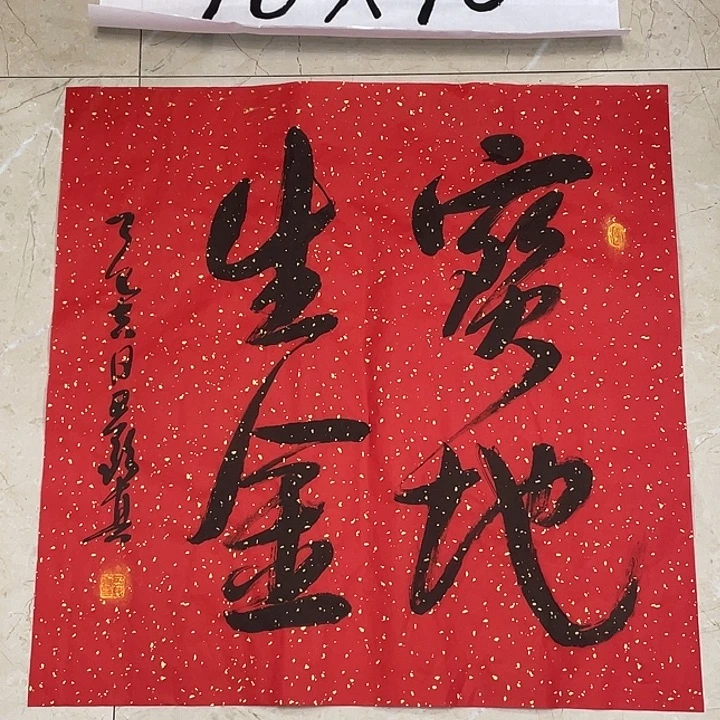 寶地
生金
乙巳吉日